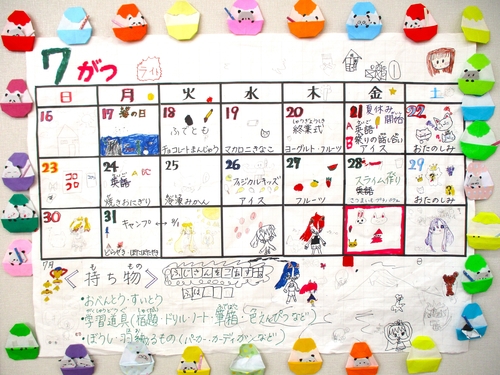 7がつ
日 月 火 水 木 金 土
16 17 海の日 18 19 20 21 夏休み開始 22
ふでとも
終業式
A 英語
B 祭りの話し合い
チョコレートまんじゅう マカロニきなこ ヨーグルト・フルーツ アイス おたのしみ
23 24 25 26 27 28 29
コロコロ
英語 ABC
フィジカルキッズ
スライム作り
英語
焼きおにぎり 冷凍みかん アイス フルーツ おたのしみ
30 31 キャンプ
7月
《持ち物》
・おべんとう・すいとう
・学習道具(宿題・ドリル・ノート・筆箱・色えんぴつなど)
・ぼうし・羽織るもの(パーカー・カーディガンなど)